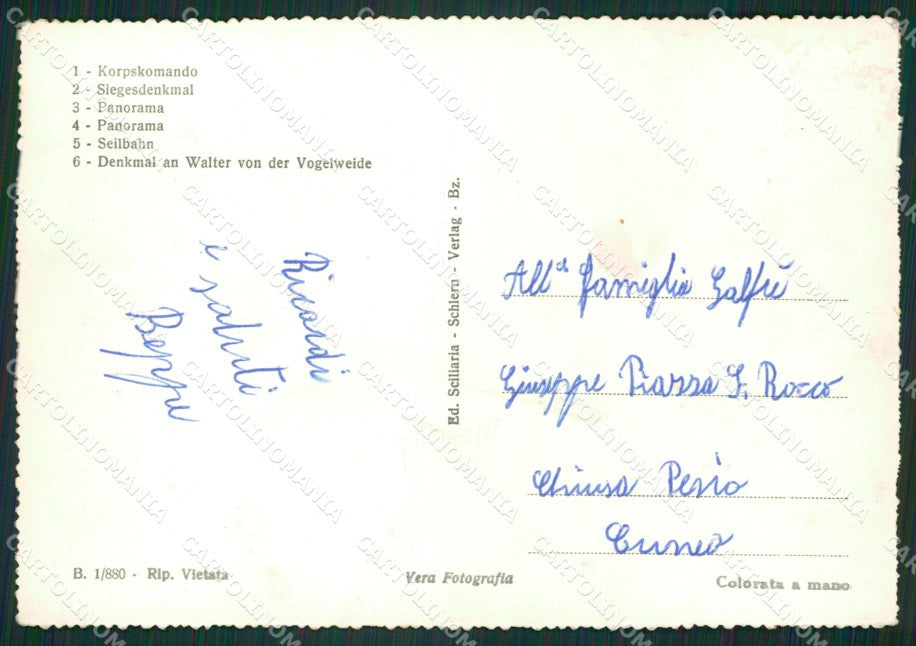 1 - Korpskomando
2 - Siegesdenkmal
3 - Panorama
4 - Panorama
5 - Seilbahn
6 - Denkmal an Walter von der Vogelweide
Ricordi
e saluti
Beppe
Ed. Sciliaria - Schlern - Verlag - Bz.
All.a famiglia Galfrè
Giuseppe Piazza S. Rocco
Chiusa Pesio
Cuneo
B. 1/880 - Rip. Vietata
Vera Fotografia
Colorata a mano
CARTOLINOMANIA